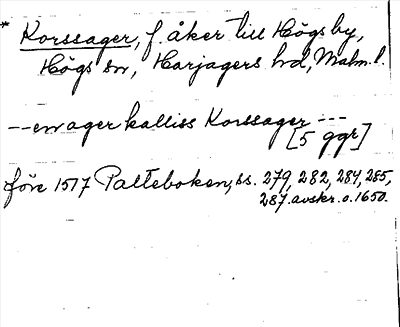 * Korssager, f. åker till Högs by,
Högs sn, Harjagers hd, Malm. l.
--- en ager kalliss Korssager ---
[5 ggr]
före 1517 Palteboken, ss. 279, 282, 284, 285,
287. avskr. o. 1650.